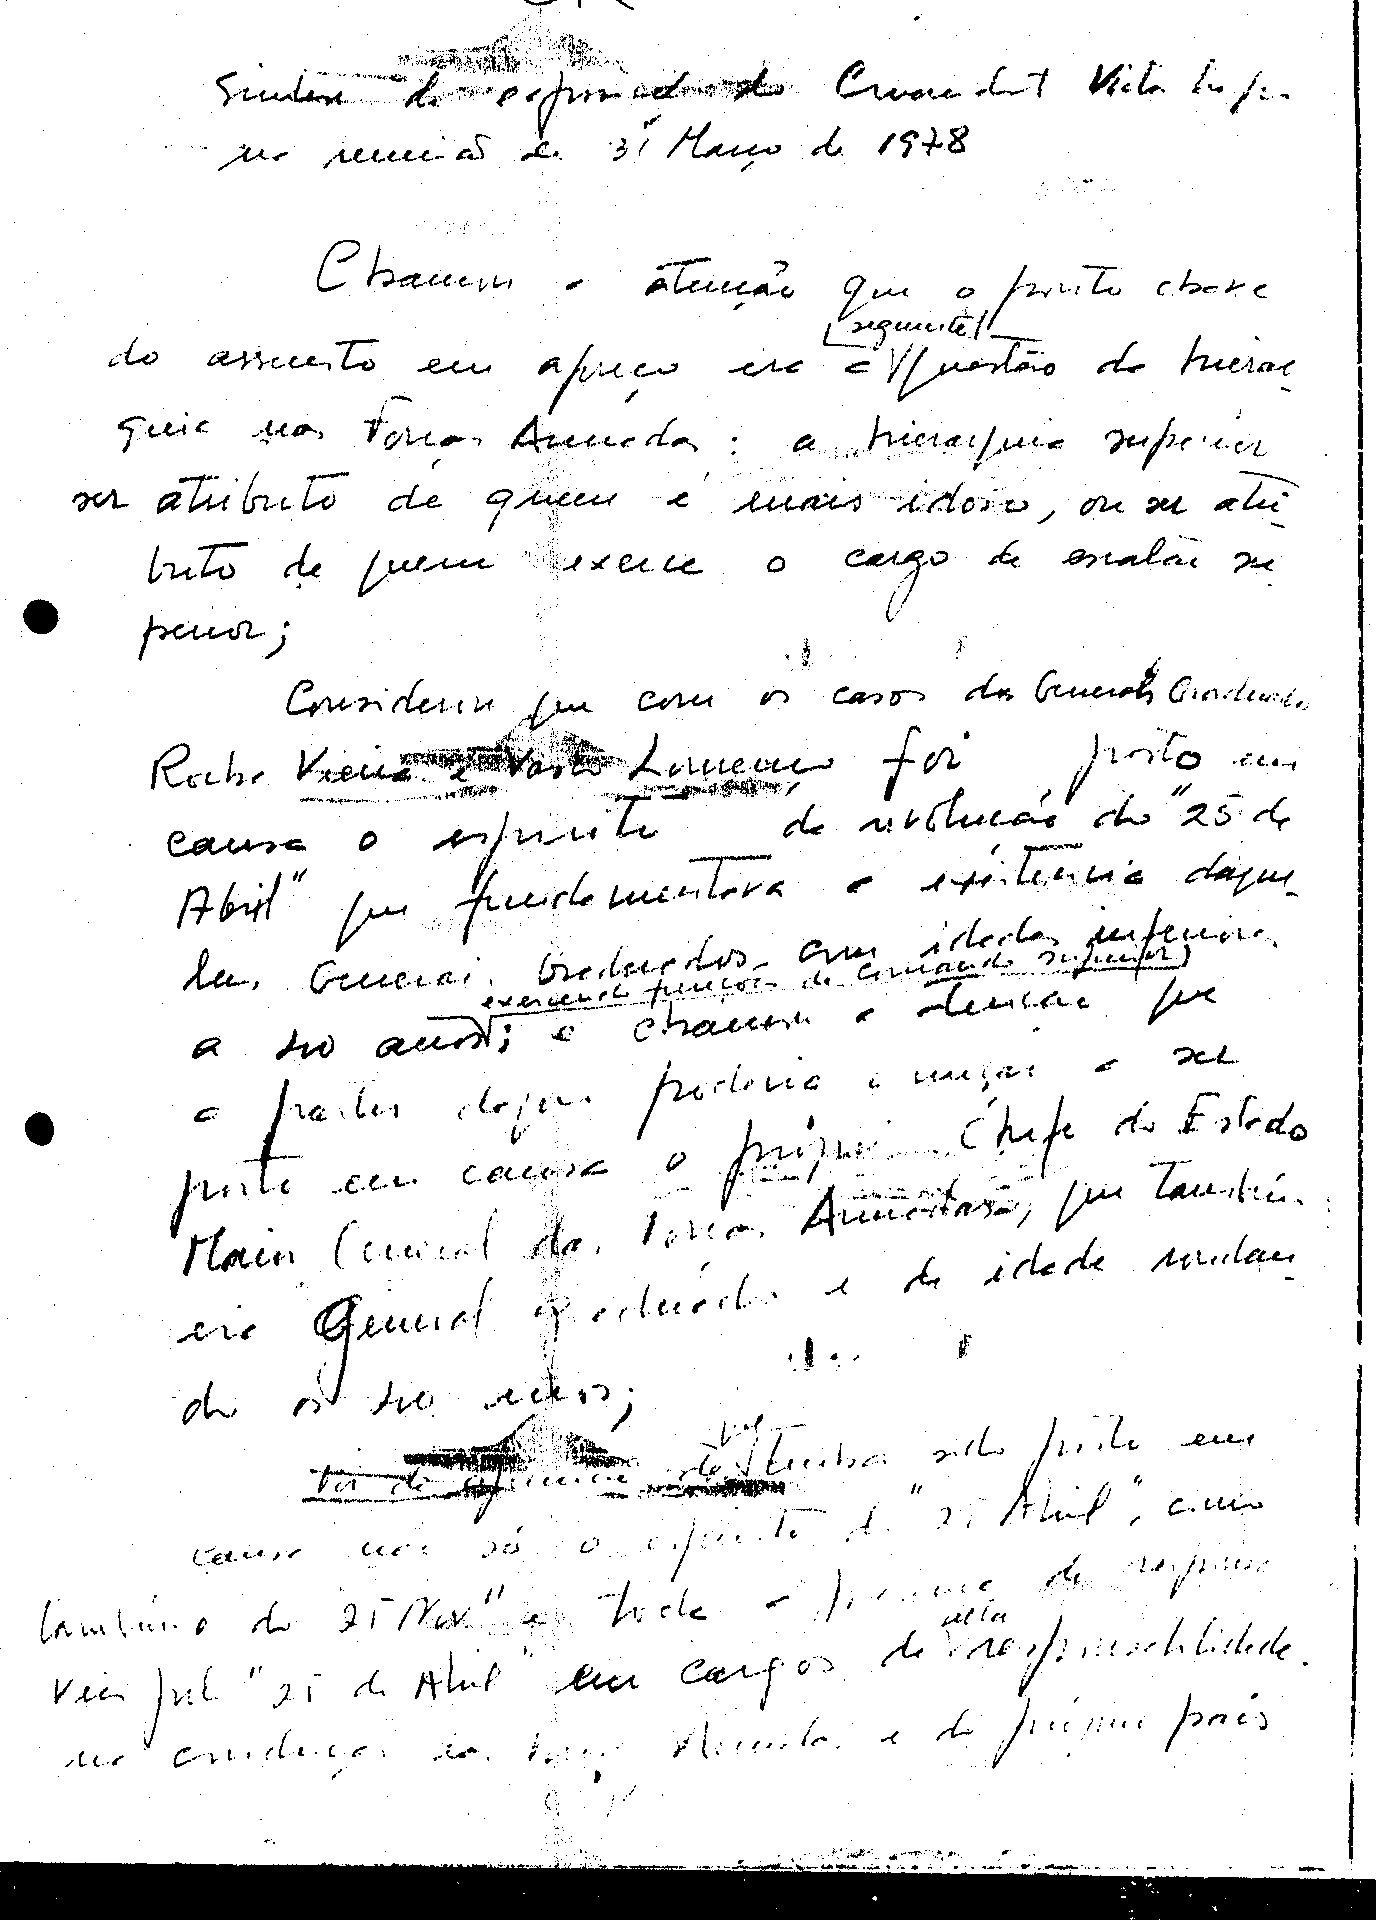 Síntese da exposição do Comandante Victor
na reunião de 31 Março de 1978
Chamou a atenção que o ponto chave
[seguinte]
do assunto em apreço era a questão da hierar-
quia nas Forças Armadas: a hierarquia superior
ser atributo de quem é mais idoso, ou ser atri-
buto de quem exerce o cargo de escalão su
perior;
Considerou que com os casos dos Generais Graduados
Rocha Vieira e Vasco Lourenço foi posto em
causa o espírito da revolução do "25 de
Abril" que fundamentava a existência daque-
les Generais Graduados com idades inferiores
exercendo funções de comando superior]
a 40 anos; e chamou a atenção que
a partir daqui poderia começar a ser
posto em causa o próprio Chefe do Estado
Maior General das Forças Armadas, que também
era General graduado e de idade rondan-
do os 40 anos;
Foi de opinião de que tenha sido posto em
causa não só o espírito do "25 Abril", como
também o do 25 Nov" e toda a
pelo "25 de Abril" em cargos de alta responsabilidade
na condução das Forças Armadas e do próprio país